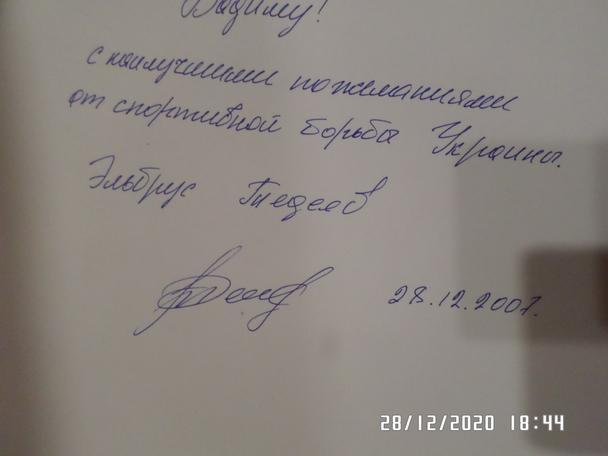 Вадиму!
с наилучшими пожеланиями
от спортивной борьбы Украины.
Эльбрус Тедеев
28.12.2007.
28/12/2020 18:44